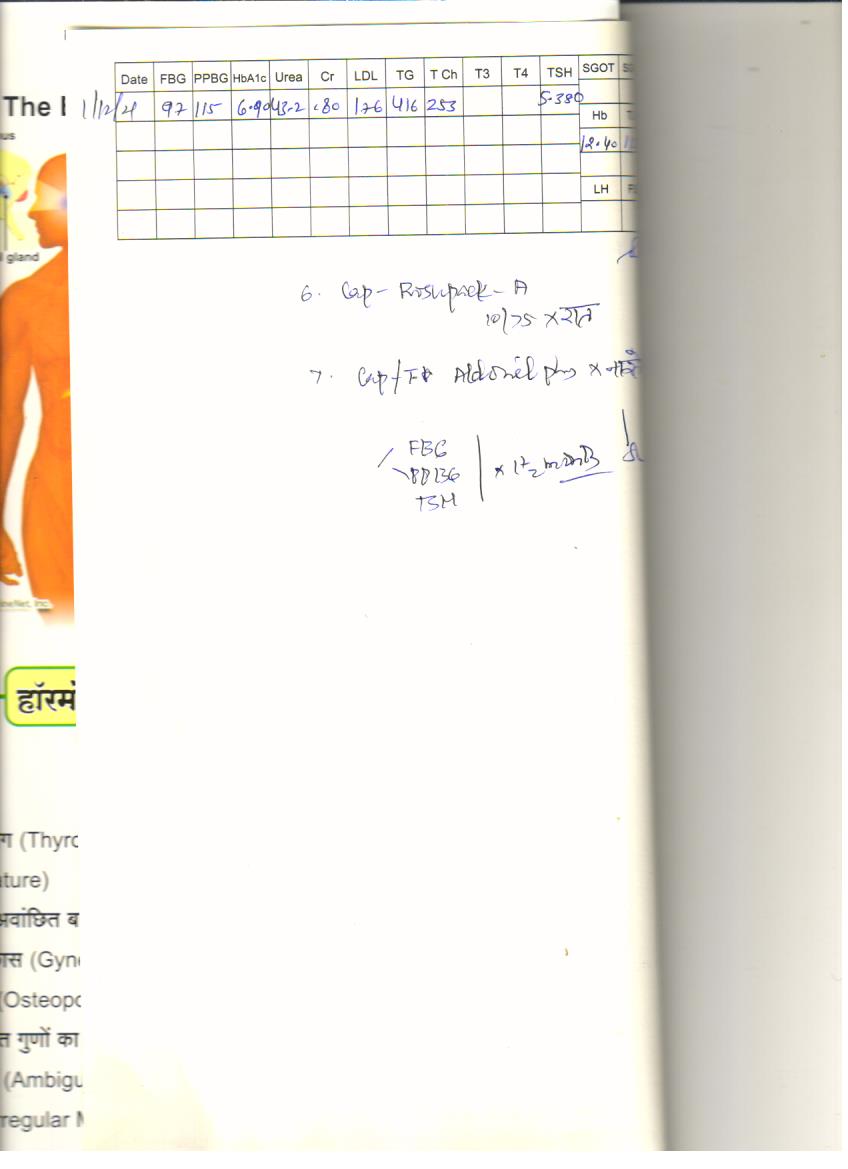 Date FBG PPBG HbA1c Urea Cr LDL TG T Ch T3 T4 TSH SGOT
1/12/21 97 115 6.90 43.2 .80 176 416 253 5.380
Hb
12.40
LH
The
us
gland
6. Cap- Rosupack-A
10/75 × रात
7. Cap/ Aldonil plus ×
FBG
PPBG
TSH
× 1½ month
neNet, Inc.
हॉरमो
ग (Thyro
ature)
अवांछित ब
ास (Gyne
(Osteopo
त गुणों का
(Ambigu
rregular M